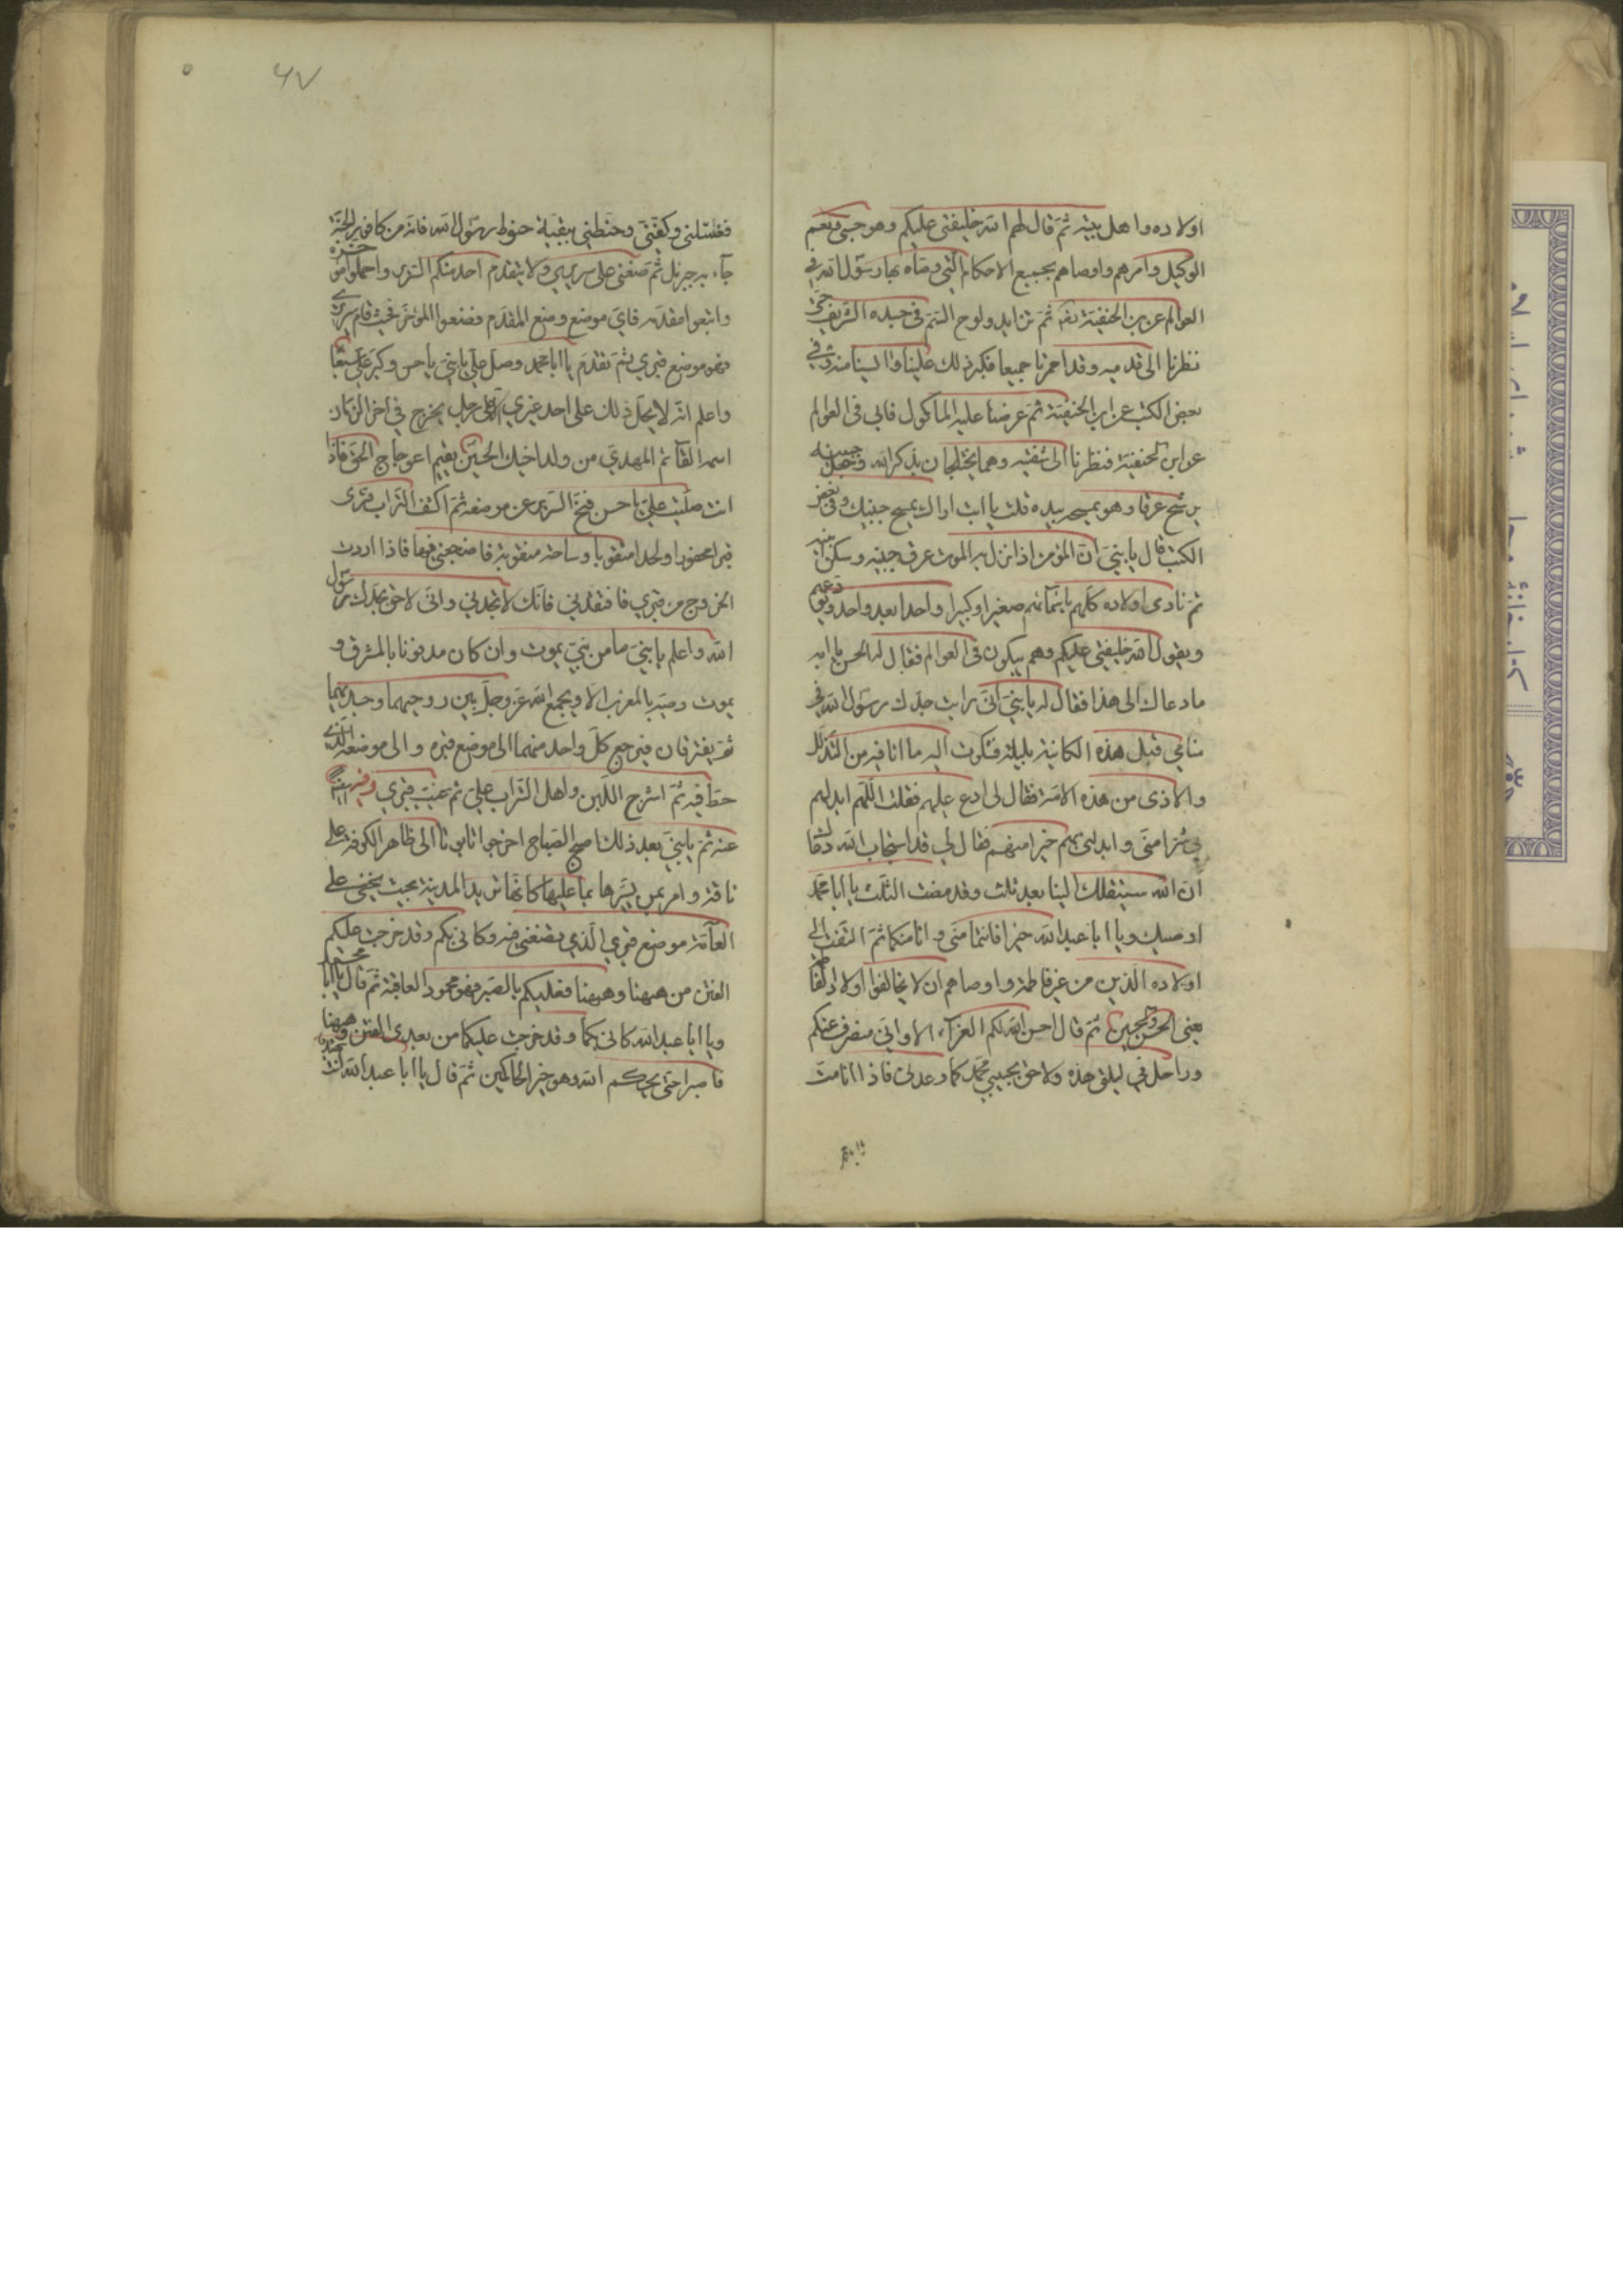 اولاده واهل بيته ثم قال لهم الله خليفتى عليكم وهو حسبى ونعم
الوكيل وامرهم واوصاهم بجميع الاحكام التي وصاه بها رسول الله في
العوالم عن ابن الحنفية ثم تزايد ولوح السم في جسده الشريف حتى
نظرنا الى قدميه وقد احمرتا جميعا فكبر ذلك علينا وايسنا منه وفي
بعض الكتب عن ابن الحنفية ثم عرضنا عليه الماكول فابى في العوالم
عن ابن الحنفية فنظرنا الى شفتيه وهما يختلجان بذكر الله وجعل جبينه
يرشح عرقا وهو يمسحه بيده قلت يا ابت اراك تمسح جبينك وفى بعض
الكتب قال يا بنى ان المؤمن اذا نزل به الموت عرق جبينه وسكن انينه
ثم نادى اولاده كلهم باسمائهم صغيرا وكبيرا واحدا بعد واحد ويودعهم
ويقول الله خليفتى عليكم وهم يبكون في العوالم فقال له الحسن يا ابه
ما دعاك الى هذا فقال له يا بني انى رايت جدك رسول الله فى
منامي قبل هذه الكائنة بليلة فشكوت اليه ما انا فيه من التذلل
والاذى من هذه الامة فقال لى ادع عليهم فقلت اللهم ابدلهم
بي شرا منى وابدلنى بهم خيرا منهم فقال لي قد استجاب الله دعاك
ان الله سينقلك الينا بعد ثلث وقد مضت الثلث يا ابا محمد
اوصيك ويا ابا عبد الله خيرا فانتما منى وانا منكما ثم التفت الى
اولاده الذين من غير فاطمة واوصاهم ان لا يخالفوا اولاد فاطمة
يعنى الحسن والحسين ثم قال احسن الله لكم العزاء الا وانى منصرف عنكم
وراحل في ليلتى هذه ولاحق بحبيبي محمد كما وعدنى فاذا انا مت
فغسلنى وكفنى وحنطني ببقية حنوط رسول الله فانه من كافور الجنة
جاء به جبرئيل ثم ضعنى على سريري ولا يتقدم احد منكم السرير واحملوا مؤخره
واتبعوا مقدمه فاى موضع وضع المقدم فضعوا المؤخر فحيث قام سريري
فهو موضع قبري ثم تقدم يا ابا محمد وصل علي يا بنى يا حسن وكبر علي سبعا
واعلم انه لا يحل ذلك على احد غيري الا على رجل يخرج في اخر الزمان
اسمه القائم المهدي من ولد اخيك الحسين يقيم اعوجاج الحق فاذا
انت صليت علي يا حسن فنح السرير عن موضعه ثم اكشف التراب فترى
قبرا محفورا ولحدا مثقوبا وساجة منقوبة فاضجعنى فيها فاذا اردت
الخروج من قبري فافتقدنى فانك لا تجدنى وانى لاحق بجدك رسول
الله واعلم يا بني ما من نبي يموت وان كان مدفونا بالمشرق و
يموت وصيه بالمغرب الا ويجمع الله عز وجل بين روحيهما وجسديهما
ثم يفترقان فيرجع كل واحد منهما الى موضع قبره والى موضعه الذي
حط فيه ثم اشرج اللبن واهل التراب علي ثم غيب قبري
عنه ثم يا بني بعد ذلك اصبح الصباح اخرجوا تابوتا الى ظاهر الكوفة على
ناقة وامر بمن يسيرها بما عليها كانها تريد المدينة بحيث يخفى على
العامة موضع قبري الذي تضعنى فيه وكانى بكم وقد خرجت عليكم
الفتن من ههنا وههنا فعليكم بالصبر فهو محمود العاقبة ثم قال يا ابا محمد
ويا ابا عبد الله كانى بكما وقد خرجت عليكما من بعدى الفتن من ههنا
فاصبرا حتى يحكم الله وهو خير الحاكمين ثم قال يا ابا عبد الله انت